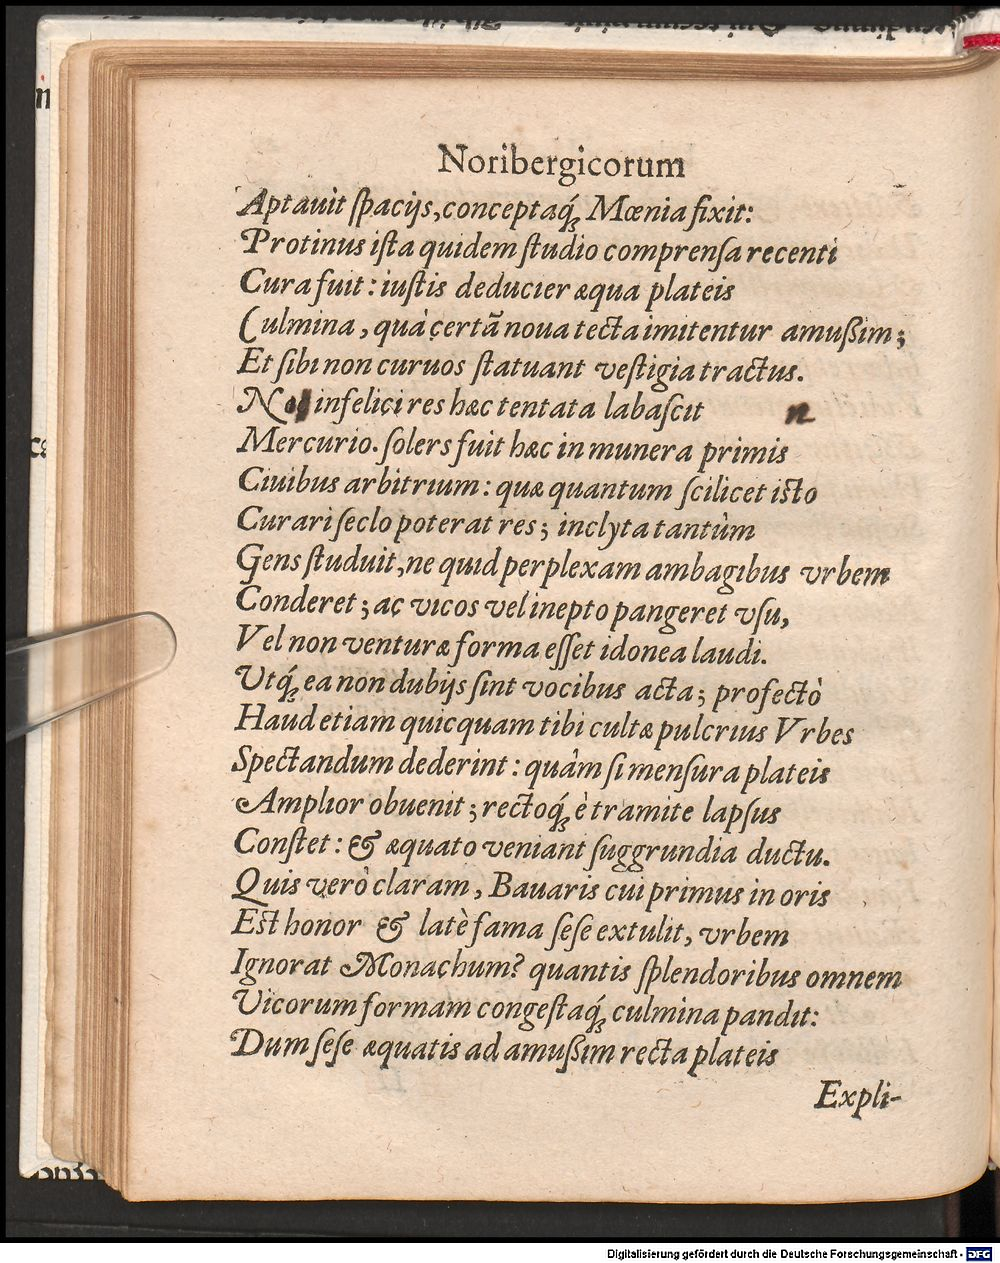 Noribergicorum
Aptauit ſpacijs, conceptaq́; Mœnia fixit:
Protinus iſta quidem ſtudio comprenſa recenti
Cura fuit: iuſtis deducier æqua plateis
Culmina, quà certã noua tecta imitentur amußim;
Et ſibi non curuos ſtatuant veſtigia tractus.
infelici res hæc tentata labaſcit n
Mercurio. ſolers fuit hæc in munera primis
Ciuibus arbitrium: quæ quantum ſcilicet isto
Curari ſeclo poterat res; inclyta tantùm
Gens ſtuduit, ne quid perplexam ambagibus vrbem
Conderet; ac vicos vel inepto pangeret vſu,
Vel non venturæ forma eſſet idonea laudi.
Utq́; ea non dubijs ſint vocibus acta; profectò
Haud etiam quicquam tibi cultæ pulcrius Vrbes
Spectandum dederint: quàm ſi menſura plateis
Amplior obuenit; rectoq́; è tramite lapſus
Conſtet: & æquato veniant ſuggrundia ductu.
Quis verò claram, Bauaris cui primus in oris
Est honor & latè fama ſeſe extulit, vrbem
Ignorat Monachum? quantis ſplendoribus omnem
Vicorum formam congeſtaq́; culmina pandit:
Dum ſeſe æquatis ad amußim recta plateis
Expli-
Digitalisierung gefördert durch die Deutsche Forschungsgemeinschaft - DFG